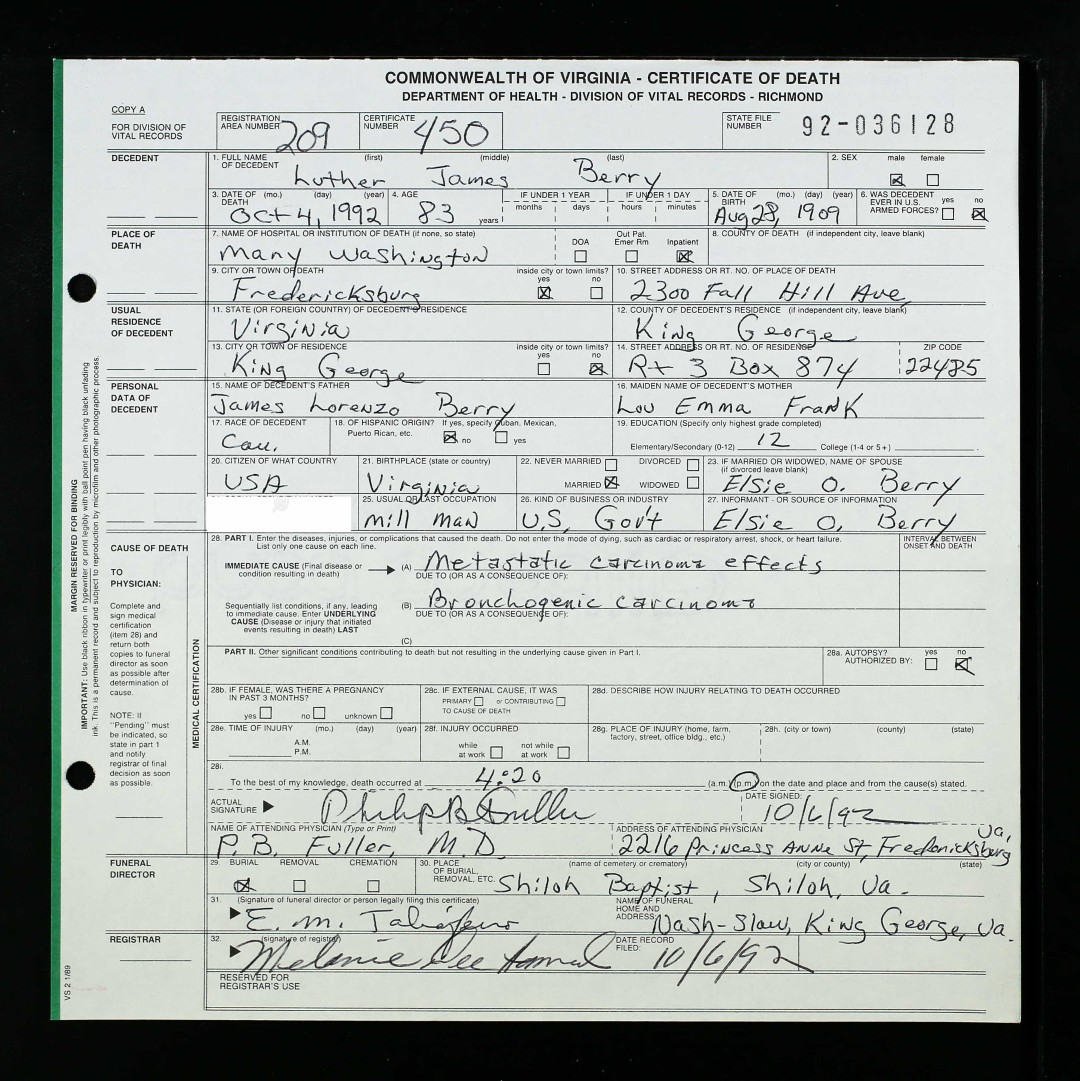 COMMONWEALTH OF VIRGINIA - CERTIFICATE OF DEATH
DEPARTMENT OF HEALTH - DIVISION OF VITAL RECORDS - RICHMOND
COPY A
FOR DIVISION OF VITAL RECORDS
REGISTRATION AREA NUMBER 209
CERTIFICATE NUMBER 450
STATE FILE NUMBER 92-036128
DECEDENT
1. FULL NAME OF DECEDENT (first) (middle) (last)
Luther James Berry
2. SEX male female
3. DATE OF DEATH (mo.) (day) (year)
Oct 4, 1992
4. AGE 83 years
IF UNDER 1 YEAR months days
IF UNDER 1 DAY hours minutes
5. DATE OF BIRTH (mo.) (day) (year)
Aug 28, 1909
6. WAS DECEDENT EVER IN U.S. ARMED FORCES? yes no
PLACE OF DEATH
7. NAME OF HOSPITAL OR INSTITUTION OF DEATH (if none, so state)
Mary Washington
DOA Out Pat. Emer Rm Inpatient
8. COUNTY OF DEATH (if independent city, leave blank)
9. CITY OR TOWN OF DEATH
Fredericksburg
inside city or town limits? yes no
10. STREET ADDRESS OR RT. NO. OF PLACE OF DEATH
2300 Fall Hill Ave,
USUAL RESIDENCE OF DECEDENT
11. STATE (OR FOREIGN COUNTRY) OF DECEDENT'S RESIDENCE
Virginia
12. COUNTY OF DECEDENT'S RESIDENCE (if independent city, leave blank)
King George
13. CITY OR TOWN OF RESIDENCE
King George
inside city or town limits? yes no
14. STREET ADDRESS OR RT. NO. OF RESIDENCE
Rt 3 Box 874
ZIP CODE
22485
PERSONAL DATA OF DECEDENT
15. NAME OF DECEDENT'S FATHER
James Lorenzo Berry
16. MAIDEN NAME OF DECEDENT'S MOTHER
Lou Emma Frank
17. RACE OF DECEDENT
Cau.
18. OF HISPANIC ORIGIN? If yes, specify Cuban, Mexican, Puerto Rican, etc.
no yes
19. EDUCATION (Specify only highest grade completed)
Elementary/Secondary (0-12) 12 College (1-4 or 5+)
20. CITIZEN OF WHAT COUNTRY
USA
21. BIRTHPLACE (state or country)
Virginia
22. NEVER MARRIED DIVORCED
MARRIED WIDOWED
23. IF MARRIED OR WIDOWED, NAME OF SPOUSE
(if divorced leave blank)
Elsie O. Berry
25. USUAL OR LAST OCCUPATION
Mill Man
26. KIND OF BUSINESS OR INDUSTRY
U.S. Gov't
27. INFORMANT - OR SOURCE OF INFORMATION
Elsie O. Berry
MARGIN RESERVED FOR BINDING
IMPORTANT: Use black ribbon in typewriter or print legibly with ball point pen having black unfading
ink. This is a permanent record and subject to reproduction by microfilm and other photographic process.
CAUSE OF DEATH
TO PHYSICIAN:
Complete and sign medical certification (item 28) and return both copies to funeral director as soon as possible after determination of cause.
NOTE: If "Pending" must be indicated, so state in part 1 and notify registrar of final decision as soon as possible.
MEDICAL CERTIFICATION
28. PART I. Enter the diseases, injuries, or complications that caused the death. Do not enter the mode of dying, such as cardiac or respiratory arrest, shock, or heart failure.
List only one cause on each line.
INTERVAL BETWEEN ONSET AND DEATH
IMMEDIATE CAUSE (Final disease or condition resulting in death)
(A) Metastatic carcinoma effects
DUE TO (OR AS A CONSEQUENCE OF):
Sequentially list conditions, if any, leading to immediate cause. Enter UNDERLYING CAUSE (Disease or injury that initiated events resulting in death) LAST
(B) Bronchogenic carcinoma
DUE TO (OR AS A CONSEQUENCE OF):
(C)
PART II. Other significant conditions contributing to death but not resulting in the underlying cause given in Part I.
28a. AUTOPSY? AUTHORIZED BY: yes no
28b. IF FEMALE, WAS THERE A PREGNANCY IN PAST 3 MONTHS?
yes no unknown
28c. IF EXTERNAL CAUSE, IT WAS
PRIMARY or CONTRIBUTING
TO CAUSE OF DEATH
28d. DESCRIBE HOW INJURY RELATING TO DEATH OCCURRED
28e. TIME OF INJURY (mo.) (day) (year)
A.M.
P.M.
28f. INJURY OCCURRED
while at work not while at work
28g. PLACE OF INJURY (home, farm, factory, street, office bldg., etc.)
28h. (city or town) (county) (state)
28i.
To the best of my knowledge, death occurred at 4:20 (a.m.) (p.m.) on the date and place and from the cause(s) stated.
ACTUAL SIGNATURE
Philip B Fuller
DATE SIGNED:
10/6/92
NAME OF ATTENDING PHYSICIAN (Type or Print)
P.B. Fuller, M.D.
ADDRESS OF ATTENDING PHYSICIAN
2216 Princess Anne St, Fredericksburg Va,
FUNERAL DIRECTOR
29. BURIAL REMOVAL CREMATION
30. PLACE OF BURIAL, REMOVAL, ETC. (name of cemetery or crematory) (city or county) (state)
Shiloh Baptist, Shiloh, Va.
31. (Signature of funeral director or person legally filing this certificate)
E. M. Taliaferro
NAME OF FUNERAL HOME AND ADDRESS:
Nash-Slaw, King George, Va.
REGISTRAR
32. (signature of registrar)
Melanie
DATE RECORD FILED:
10/6/92
RESERVED FOR REGISTRAR'S USE
VS 2 1/89